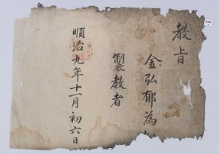 教旨
金弘郁爲
製教者
順治九年十一月初六日